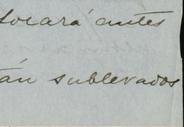 tocará antes
tán sublevados